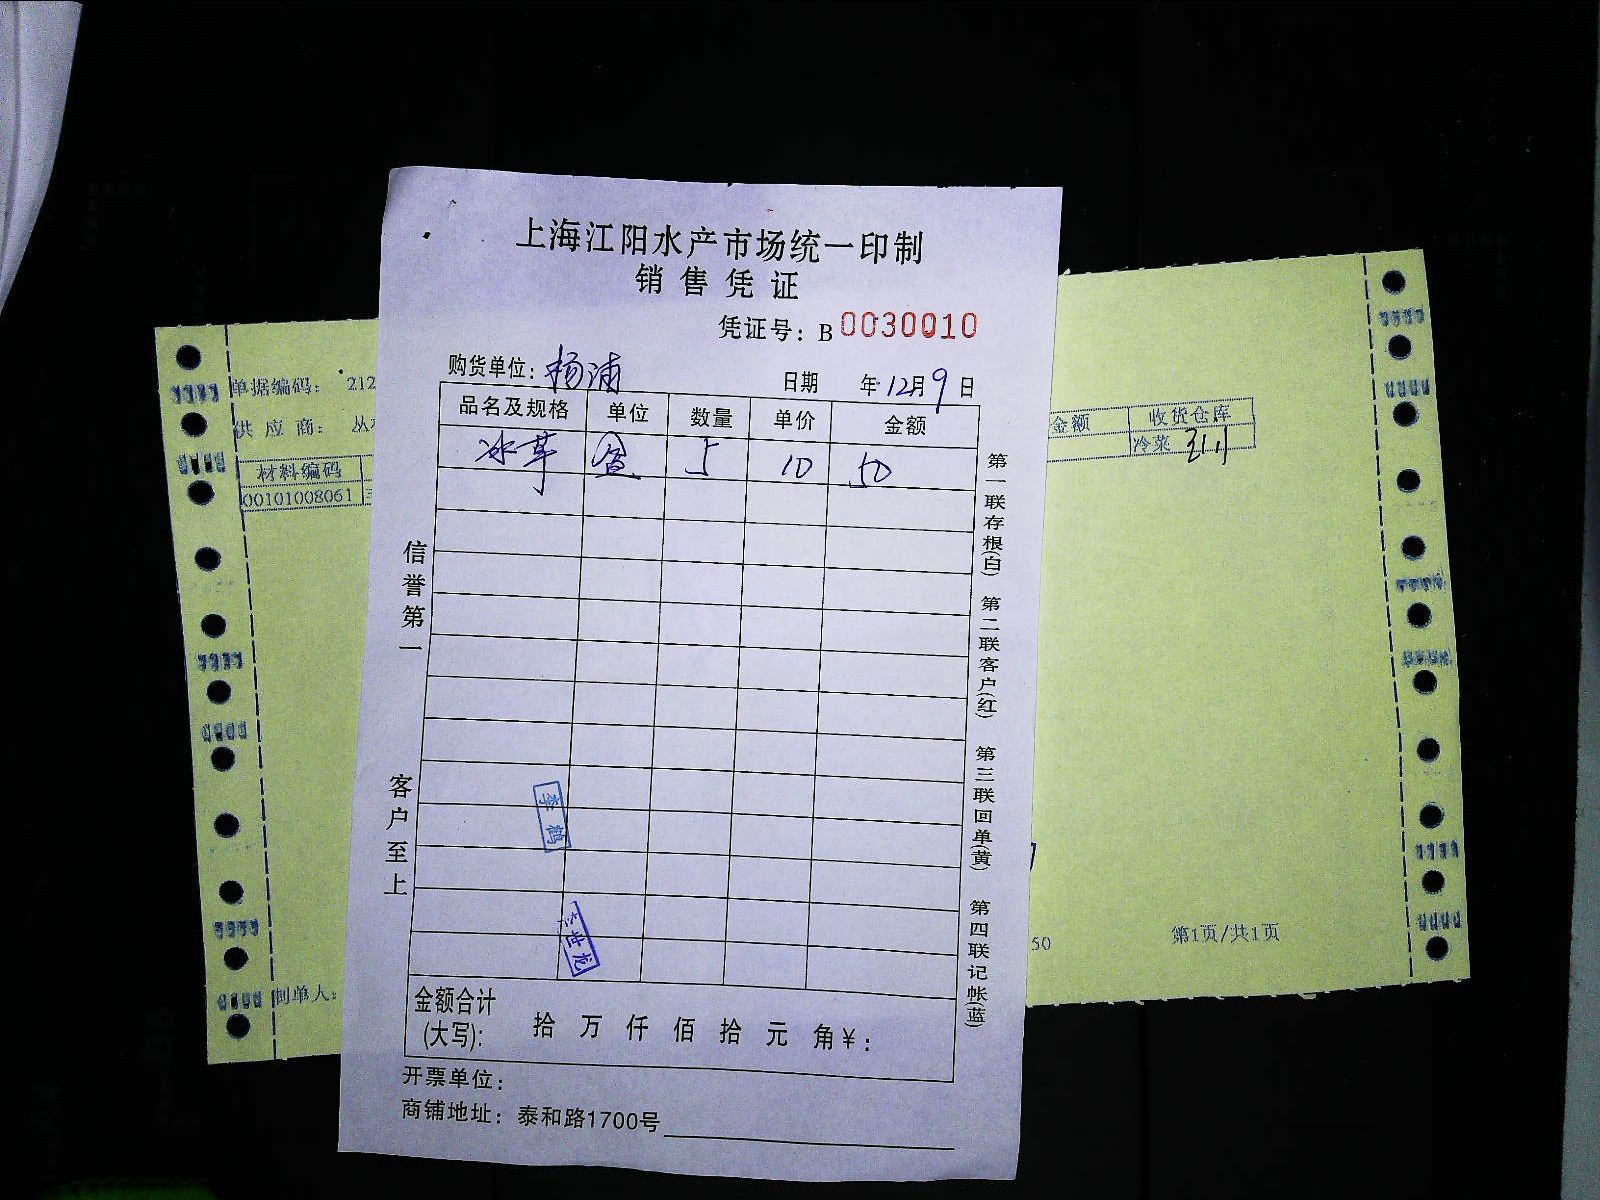 上海江阳水产市场统一印制
销售凭证
凭证号：B 0030010
购货单位：杨浦 日期 年12月9日
品名及规格 单位 数量 单价 金额
冰草 盒 5 10 50
信誉第一
客户至上
第一联存根(白) 第二联客户(红) 第三联回单(黄) 第四联记帐(蓝)
李鹤
世龙
金额合计
(大写)： 拾 万 仟 佰 拾 元 角 ¥：
开票单位：
商铺地址：泰和路1700号
单据编码： 212
供应商： 丛
材料编码
00101008061
制单人：
金额 收货仓库
冷菜
50
第1页/共1页